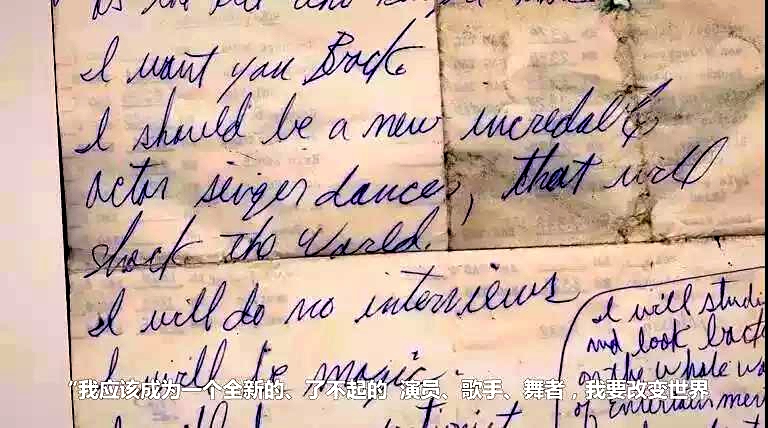 I want you Back
I should be a new incredable
actor singer dancer, that will
shock the world.
I will do no interviews
I will be magic.
I will
I will studi
and look back
on the whole wo
of entertainmen
“我应该成为一个全新的、了不起的 演员、歌手、舞者，我要改变世界